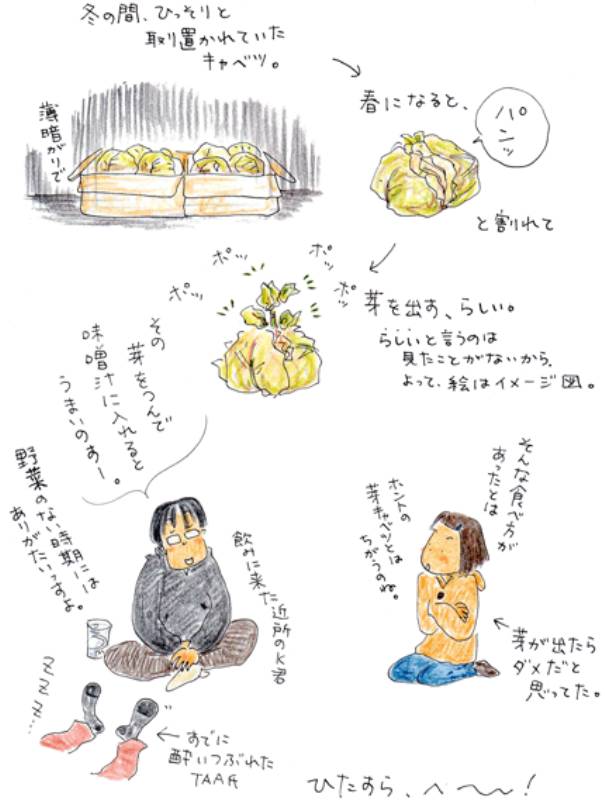 冬の間、ひっそりと
取り置かれていた
キャベツ。
薄暗がりで
春になると、
パンッ
と割れて
ポッ
ポッ
ポッ
ポッ
芽を出す、らしい。
らしいと言うのは
見たことがないから、
よって、絵はイメージ図。
その芽をつんで
味噌汁に入れると
うまいのすー。
野菜のない時期には
ありがたいっすよ。
飲みに来た近所のK君
そんな食べ方が
あったとは
ホントの
芽キャベツとは
ちがうのね。
芽が出たら
ダメだと
思ってた。
ZZZZ……
すでに
酔いつぶれた
TAA氏
ひたすら、へ〜〜!